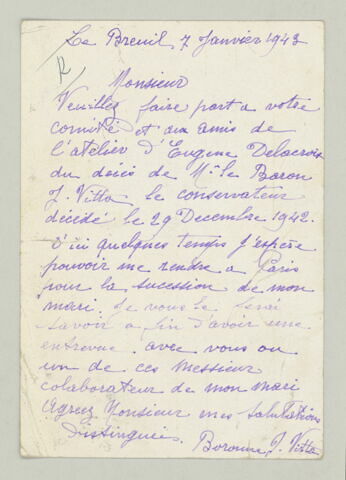 Le Breuil 7 Janvier 1943
R
Monsieur
Veuillez faire part a votre
comité et aux amis de
l'atelier d'Eugene Delacroix
du décès de Mr le Baron
J. Vitta le conservateur
décédé le 29 Decembre 1942.
D'ici quelques temps j'espere
pouvoir me rendre a Paris
pour la sucession de mon
mari. Je vous le ferai
savoir a fin d'avoir une
entrevue avec vous ou
un de ces Messieur
colaborateur de mon mari
Agreez Monsieur mes salutations
distinguées. Baronne J. Vitta